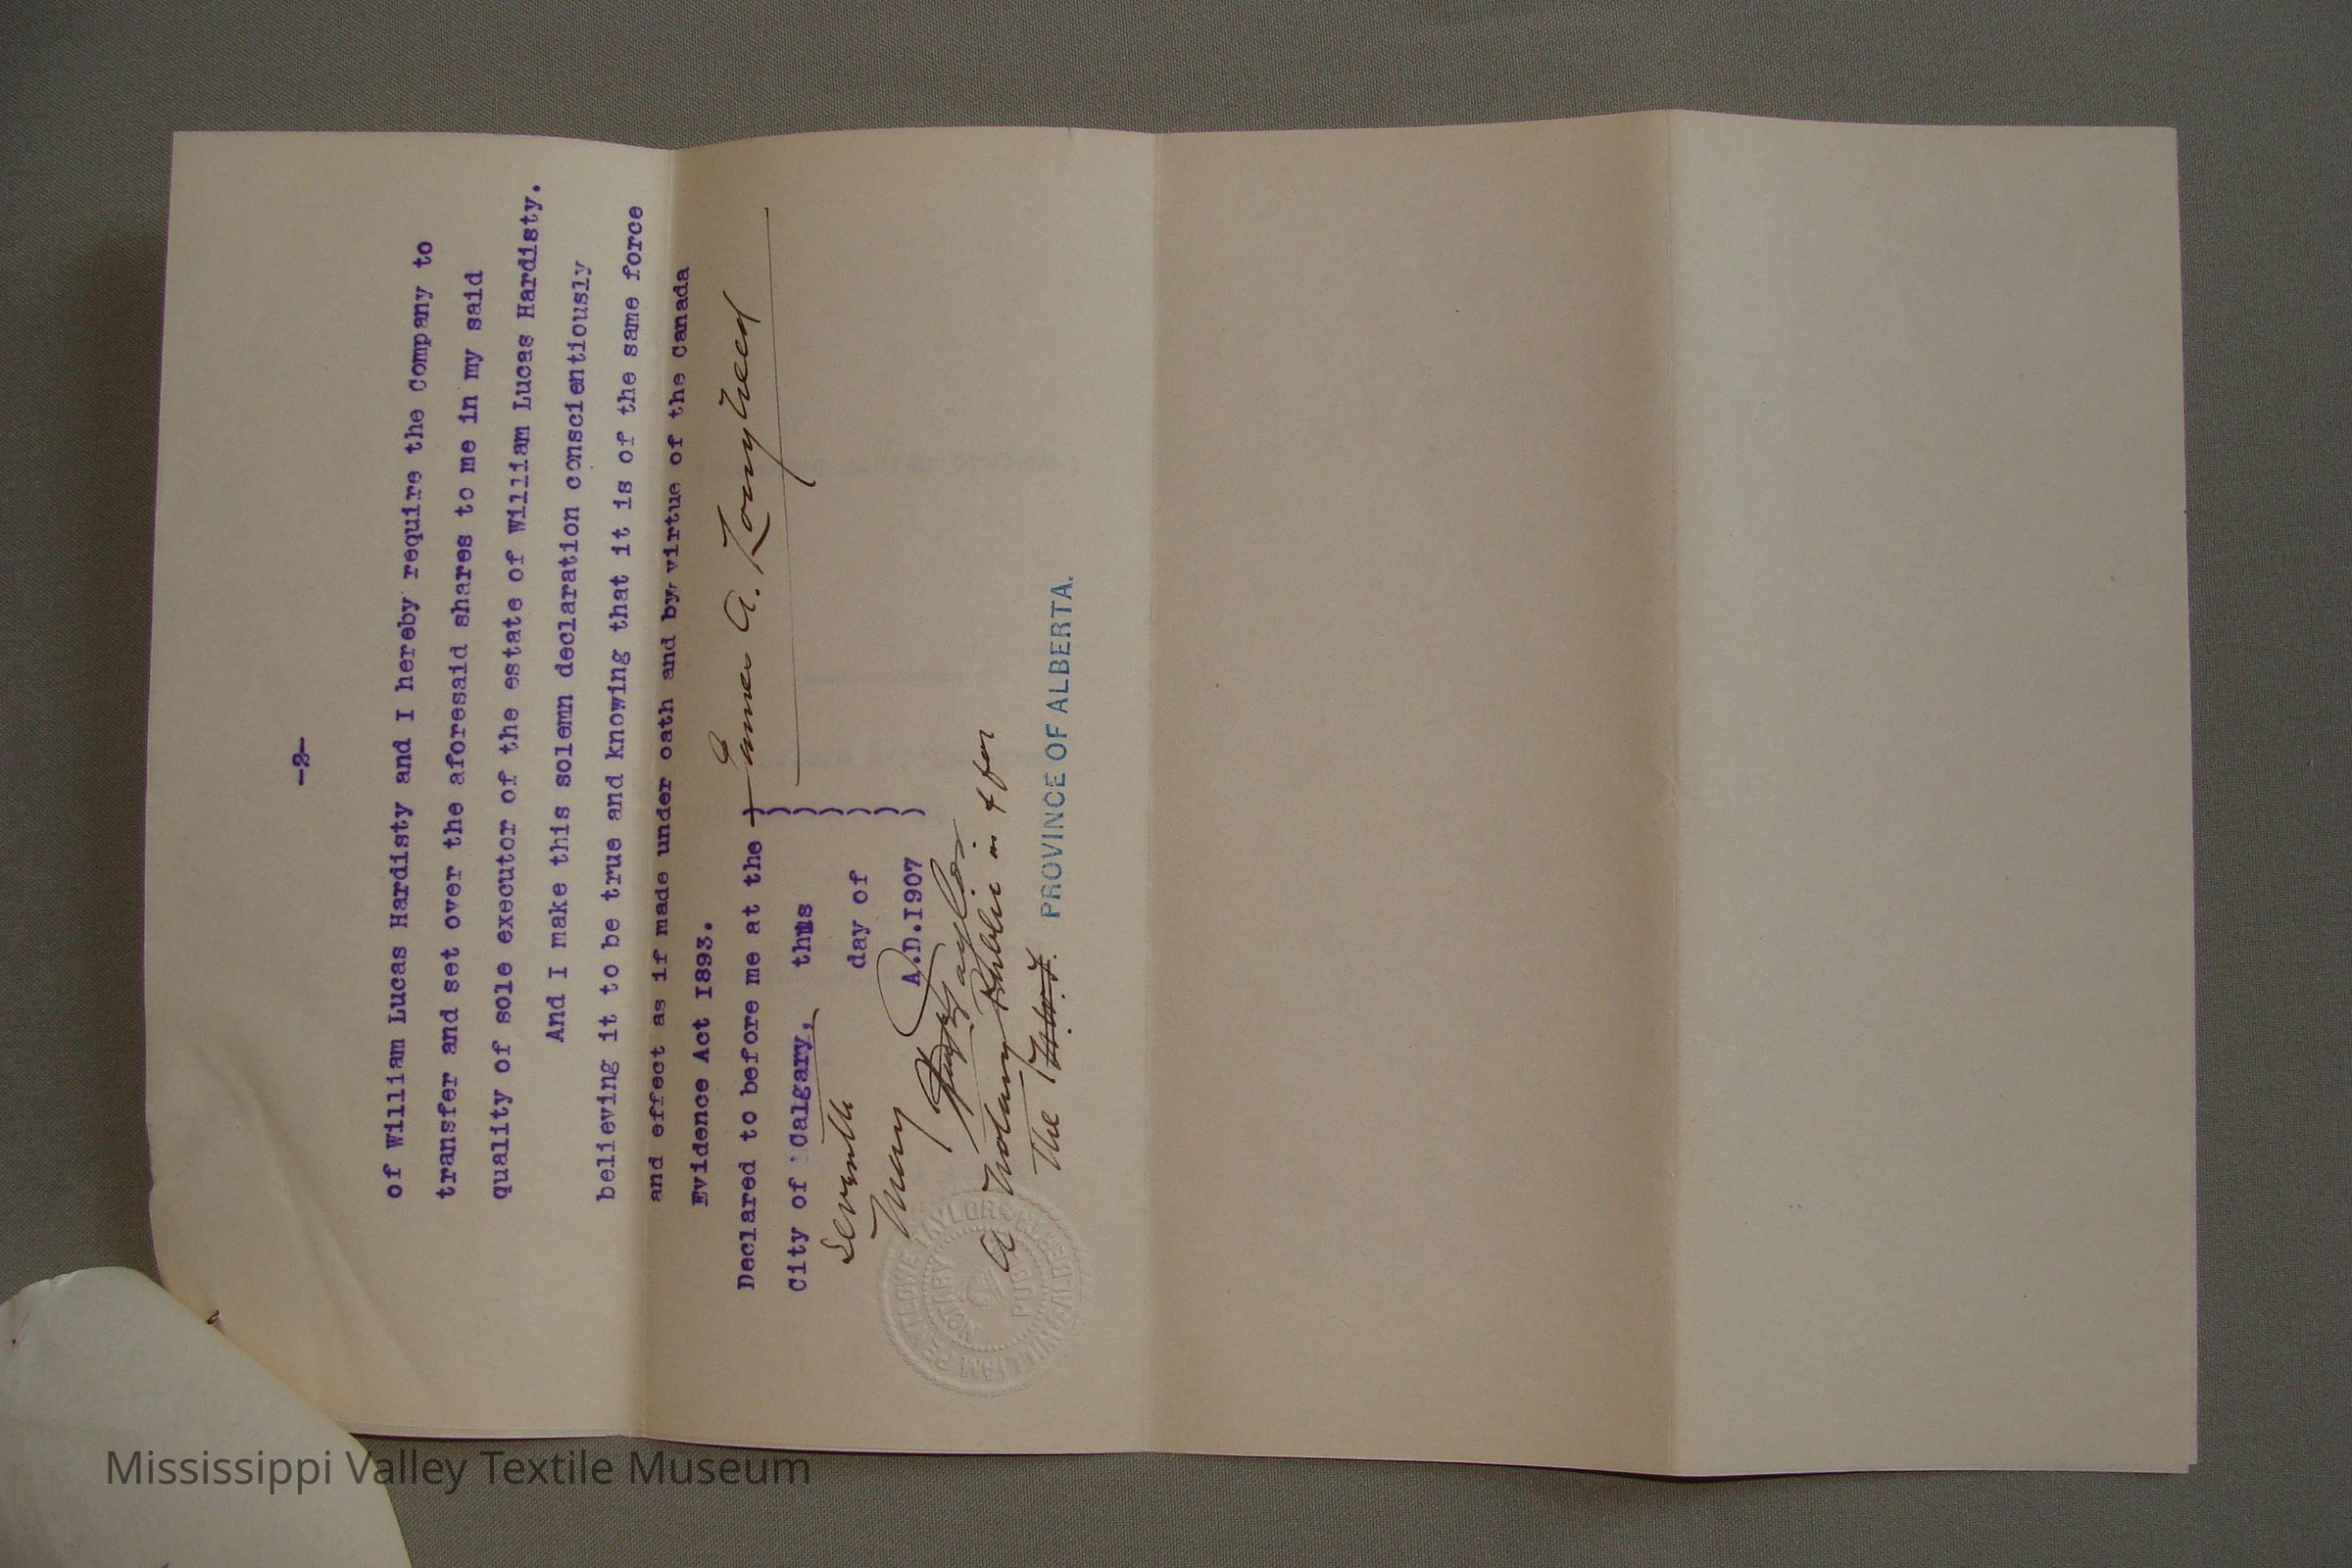 -2-
of William Lucas Hardisty and I hereby require the Company to
transfer and set over the aforesaid shares to me in my said
quality of sole executor of the estate of William Lucas Hardisty.
And I make this solemn declaration conscientiously
believing it to be true and knowing that it is of the same force
and effect as if made under oath and by virtue of the Canada
Evidence Act 1893.
Declared to before me at the )
City of Calgary, this )
Seventh day of )
May A.D.1907 )
James A. Lougheed
Taylor
A Notary Public in & for
The N.W.T. PROVINCE OF ALBERTA.
WILLIAM PENDLOWE TAYLOR
NOTARY PUBLIC
Mississippi Valley Textile Museum